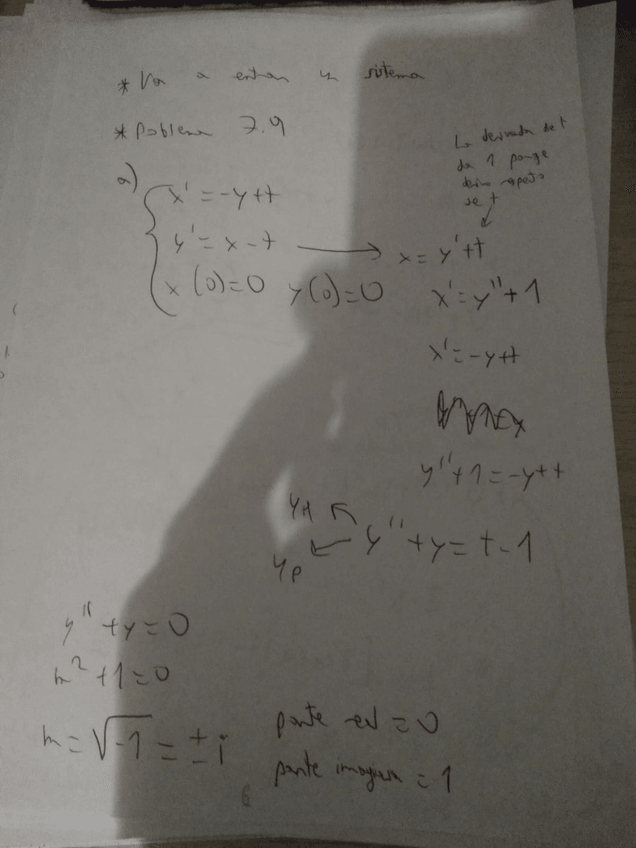 * Va a entrar un sistema
* Problema 7.9
a)
x' = -y+t
y' = x-t → x = y'+t
x(0)=0 y(0)=0
La derivada de t
da 1 porque
derivo respecto
de t
x' = y''+1
x' = -y+t
y''+1 = -y+t
yH
yp
y''+y = t-1
y''+y=0
m²+1=0
m = √-1 = ±i
parte real = 0
parte imagin = 1